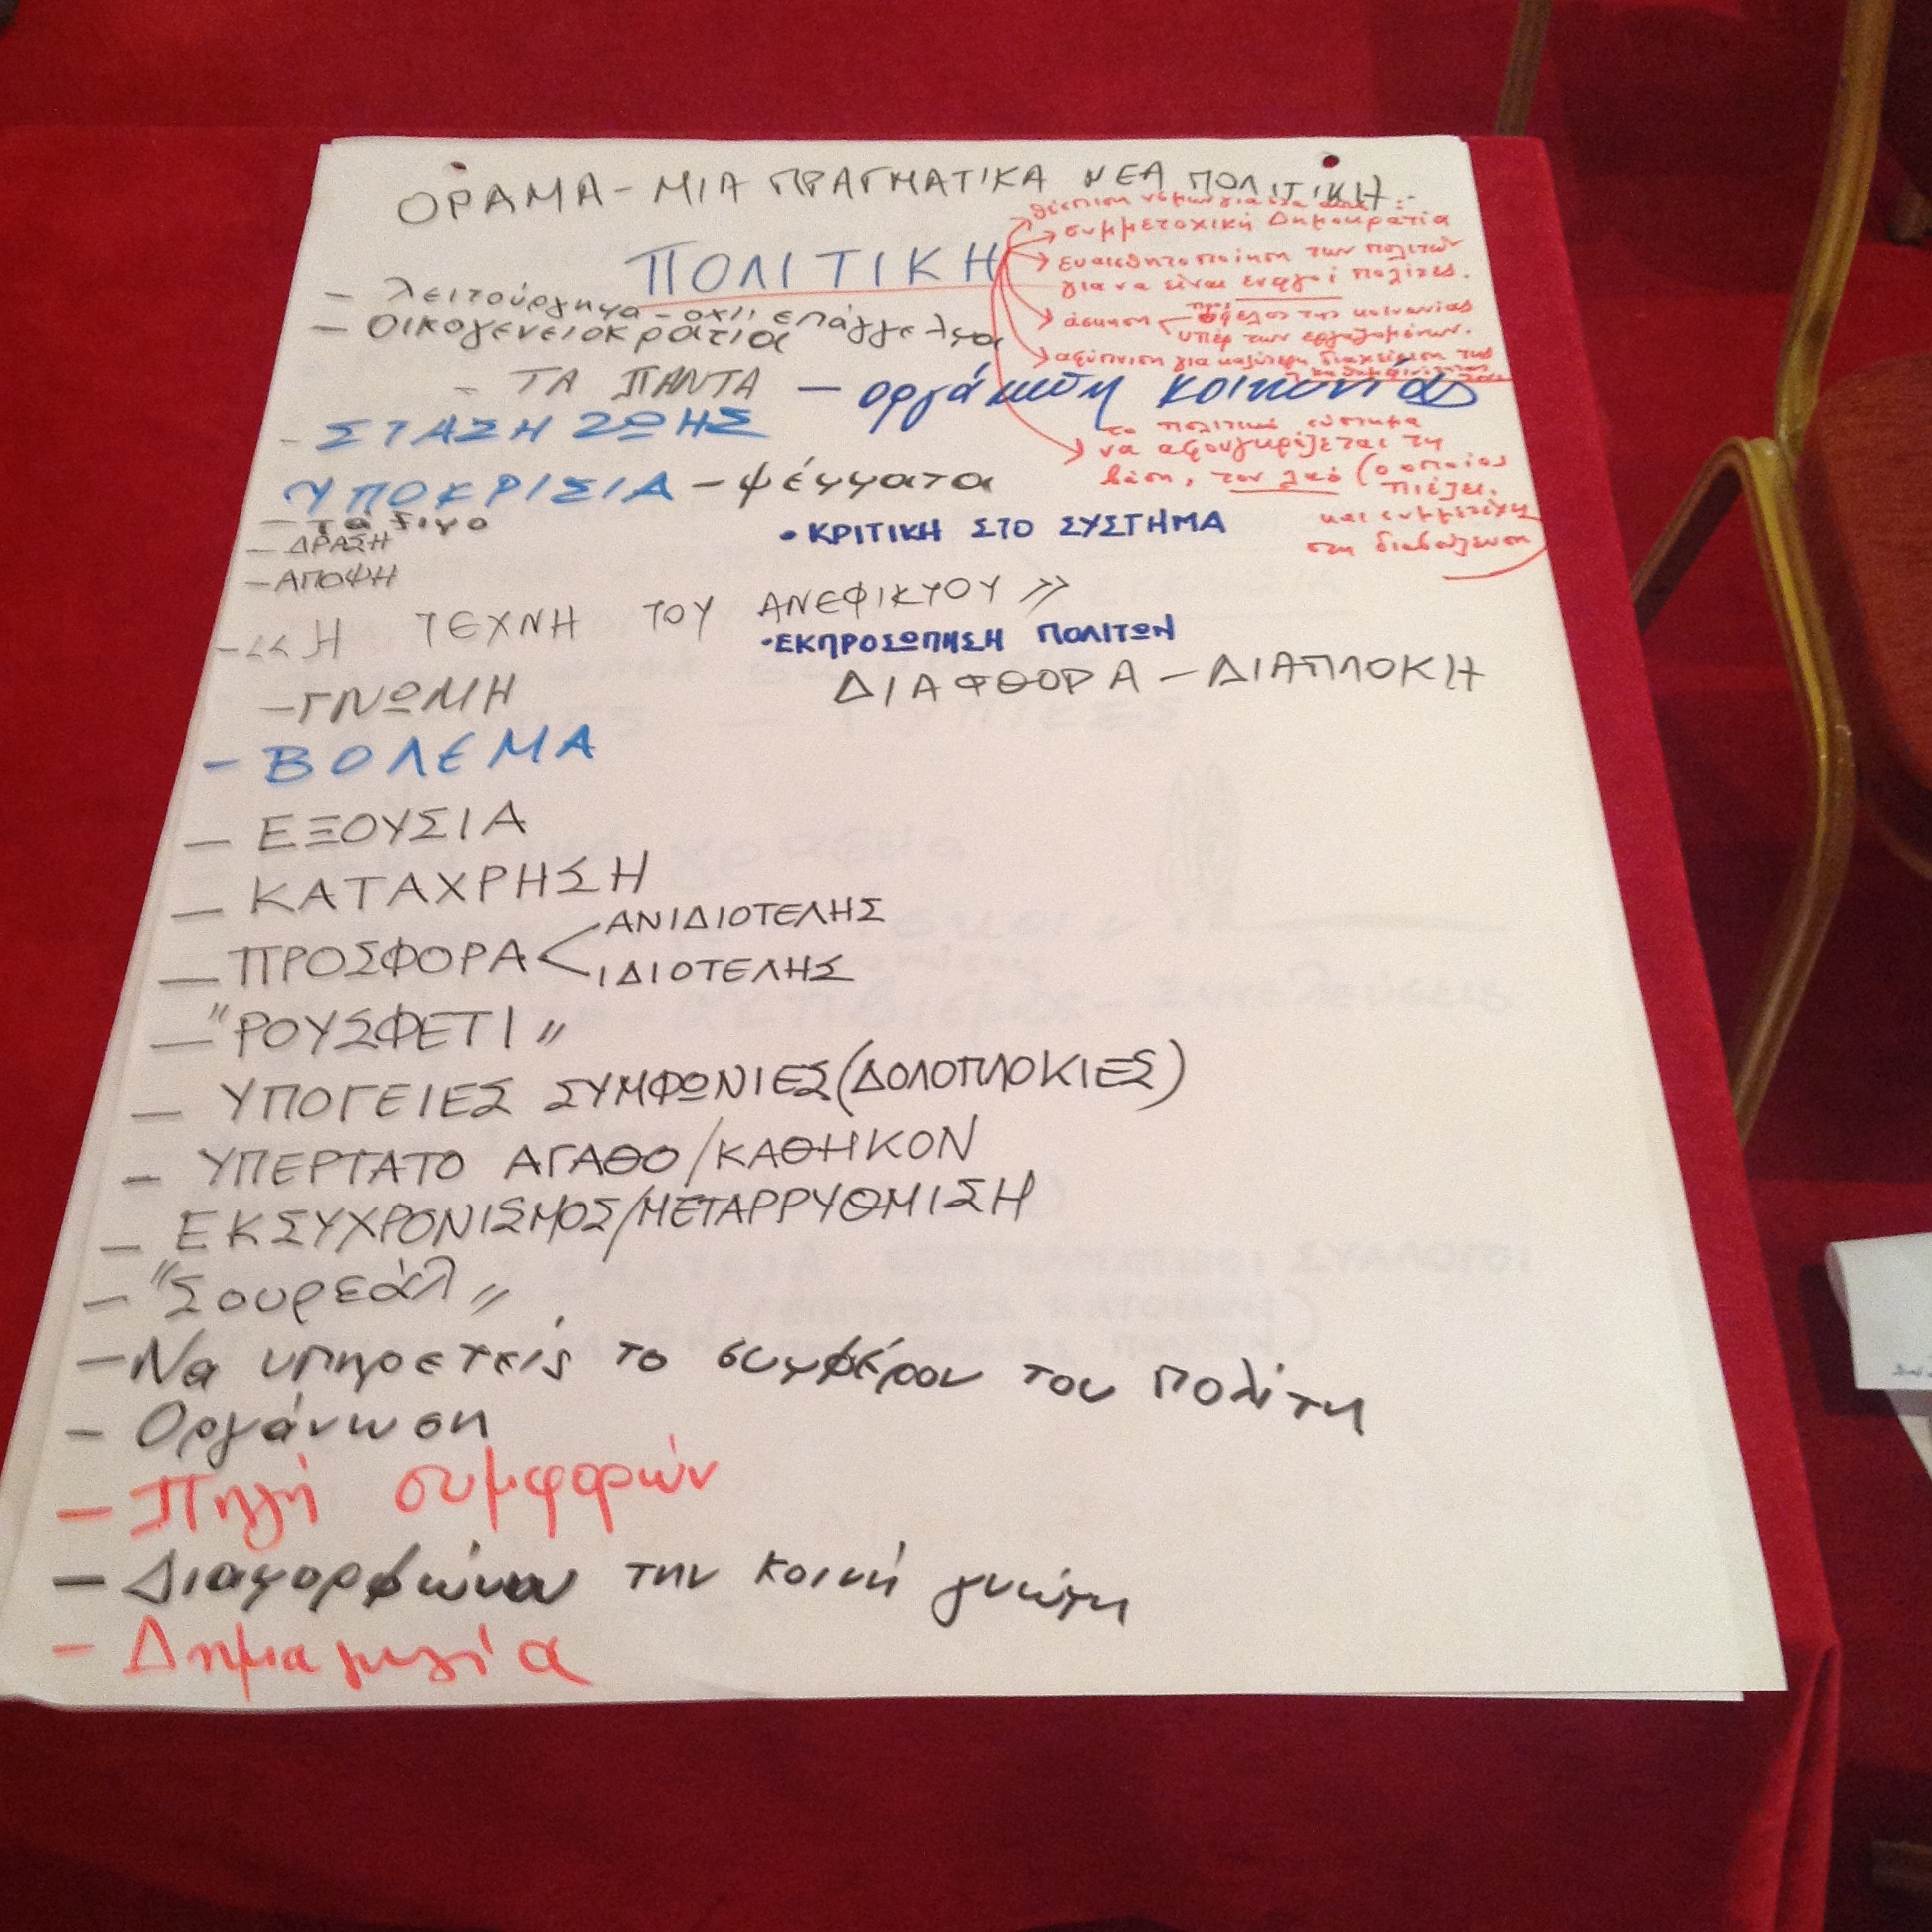 ΟΡΑΜΑ - ΜΙΑ ΠΡΑΓΜΑΤΙΚΑ ΝΕΑ ΠΟΛΙΤΙΚΗ
ΠΟΛΙΤΙΚΗ
συμμετοχική Δημοκρατία
ευαισθητοποίηση των πολιτών
για να είναι ενεργοί πολίτες.
άσκηση
όφελος της κοινωνίας
υπέρ των εργαζομένων.
αφύπνιση για καλύτερη διαχείριση της
το πολιτικό σύστημα
να αφουγκράζεται τη
βάση, τον λαό (ο οποίος
πιέζει
και συμμετέχει
στη διαβούλευση
- λειτούργημα - όχι επάγγελμα
- Οικογενειοκρατία
- ΤΑ ΠΑΝΤΑ - οργάνωση κοινωνίας
- ΣΤΑΣΗ ΖΩΗΣ
ΥΠΟΚΡΙΣΙΑ - ψέμματα
• ΚΡΙΤΙΚΗ ΣΤΟ ΣΥΣΤΗΜΑ
- ΔΡΑΣΗ
- ΑΠΟΨΗ
- << Η ΤΕΧΝΗ ΤΟΥ ΑΝΕΦΙΚΤΟΥ >>
• ΕΚΠΡΟΣΩΠΗΣΗ ΠΟΛΙΤΩΝ
- ΓΝΩΜΗ
ΔΙΑΦΘΟΡΑ - ΔΙΑΠΛΟΚΗ
- ΒΟΛΕΜΑ
- ΕΞΟΥΣΙΑ
- ΚΑΤΑΧΡΗΣΗ
- ΠΡΟΣΦΟΡΑ < ΑΝΙΔΙΟΤΕΛΗΣ
ΙΔΙΟΤΕΛΗΣ
- "ΡΟΥΣΦΕΤΙ"
- ΥΠΟΓΕΙΕΣ ΣΥΜΦΩΝΙΕΣ (ΔΟΛΟΠΛΟΚΙΕΣ)
- ΥΠΕΡΤΑΤΟ ΑΓΑΘΟ/ΚΑΘΗΚΟΝ
- ΕΚΣΥΧΡΟΝΙΣΜΟΣ/ΜΕΤΑΡΡΥΘΜΙΣΗ
- "Σουρεάλ"
- Να υπηρετείς το συμφέρον του πολίτη
- Οργάνωση
- Πηγή συμφορών
- Διαμορφώνω την κοινή γνώμη
- Δημαγωγία